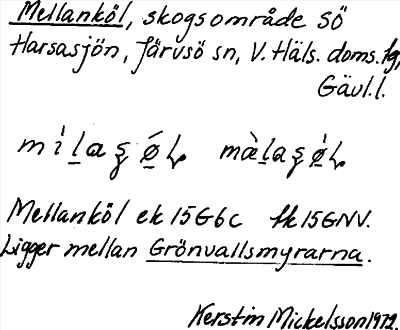 Mellanköl, skogsområde SÖ
Harsasjön, Järvsö sn, V. Häls. doms. fg,
Gävl. l.
Mellanköl ek 15G6c fk 15GNV.
Ligger mellan Grönvallsmyrarna.
Kerstin Mickelsson 1972.